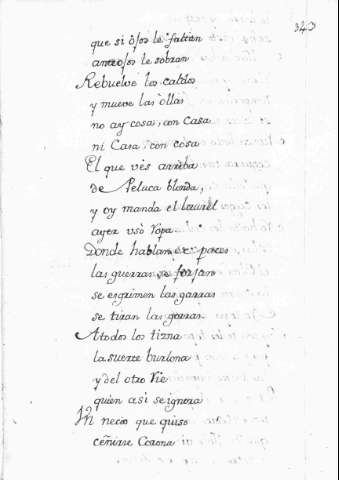 343
que si ojos le faltan
anteojos le sobran
Rebuelve los caldos
y mueve las ollas
no ay cosa, con Casa
ni Casa, con cosa
El que vès arriba
de Peluca blonda,
y oy manda el laurel
ayer usò ropa
Donde hablan de paces
las guerras se forjan
se esgrimen las garras
se tiran las gorras
A todos los tizna
la suerte burlona
y del otro rie
quien asi se ignora
Un necio que quiso
ceñirse Corona